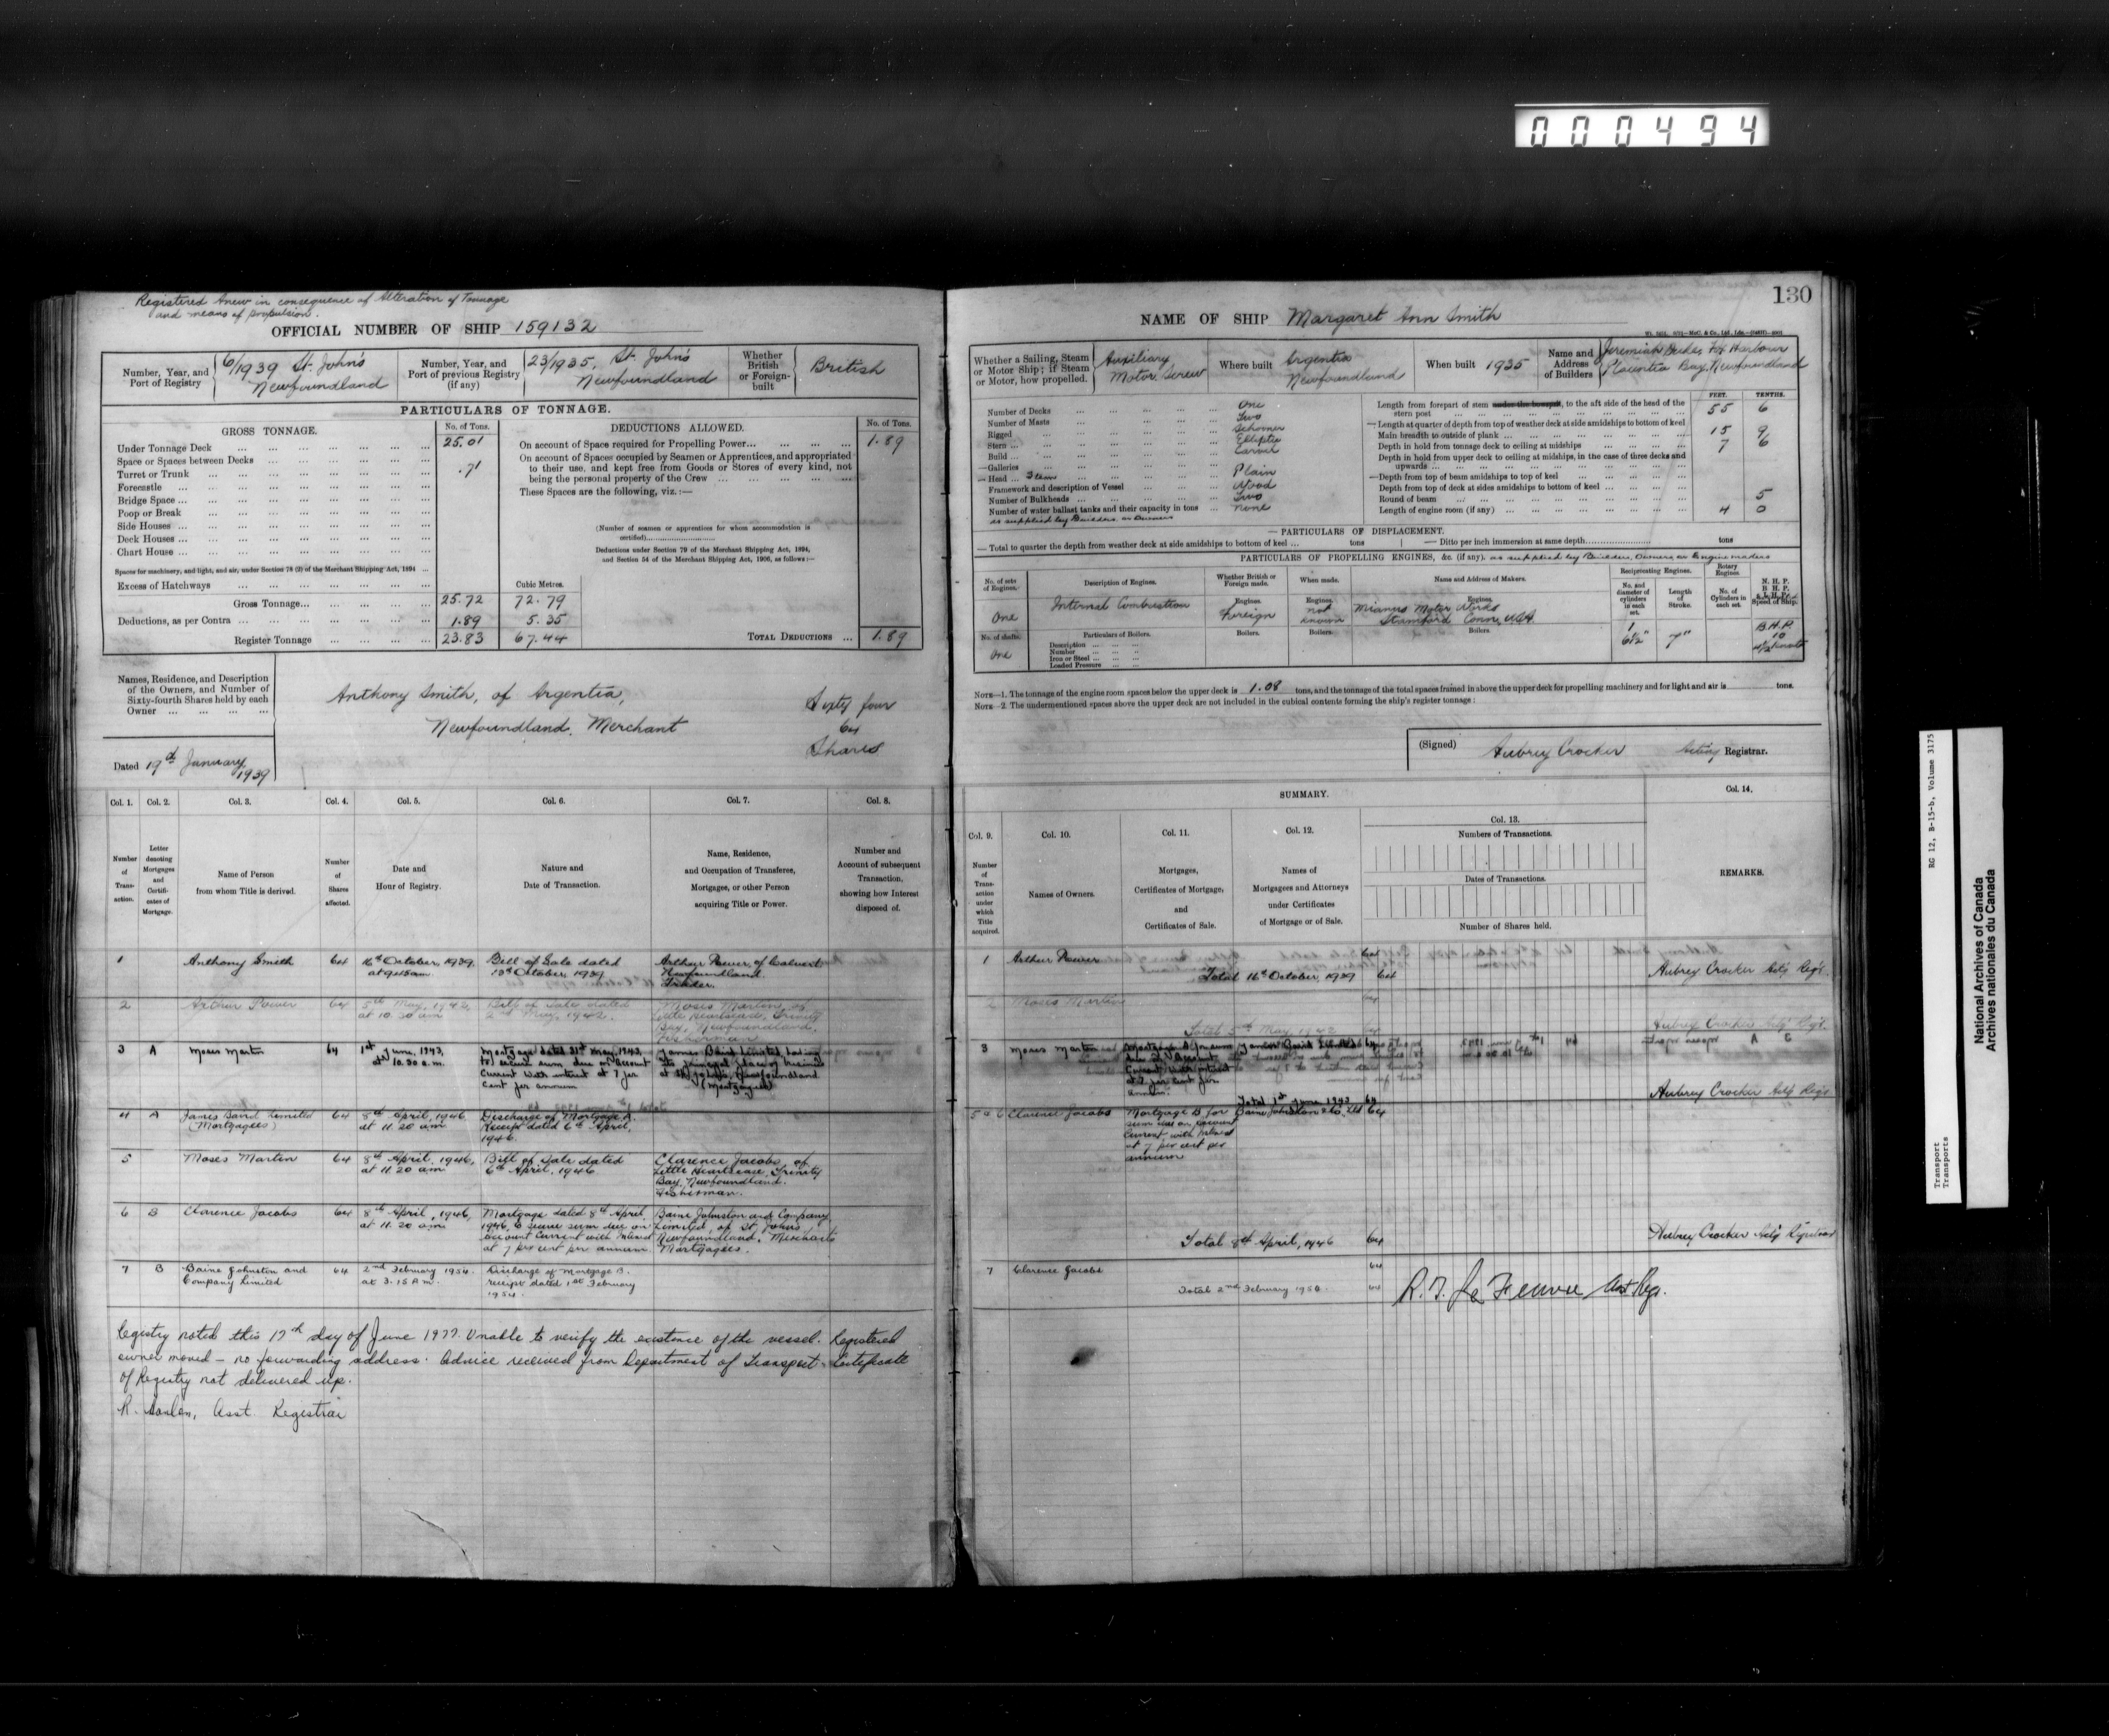 000494
Registered Anew in consequence of Alteration of Tonnage
and means of propulsion.
OFFICIAL NUMBER OF SHIP 159132
Number, Year, and Port of Registry
6/1939 St. John's
Newfoundland
Number, Year, and Port of previous Registry (if any)
23/1935, St. John's
Newfoundland
Whether British or Foreign-built
British
PARTICULARS OF TONNAGE.
GROSS TONNAGE.
No. of Tons.
DEDUCTIONS ALLOWED.
No. of Tons.
Under Tonnage Deck 25.01
Space or Spaces between Decks
Turret or Trunk .71
Forecastle
Bridge Space
Poop or Break
Side Houses
Deck Houses
Chart House
Spaces for machinery, and light, and air, under Section 78 (2) of the Merchant Shipping Act, 1894
Excess of Hatchways
Cubic Metres.
Gross Tonnage 25.72 72.79
Deductions, as per Contra 1.89 5.35
Register Tonnage 23.83 67.44
On account of Space required for Propelling Power 1.89
On account of Spaces occupied by Seamen or Apprentices, and appropriated
to their use, and kept free from Goods or Stores of every kind, not
being the personal property of the Crew
These Spaces are the following, viz.:—
(Number of seamen or apprentices for whom accommodation is
certified)
Deductions under Section 79 of the Merchant Shipping Act, 1894,
and Section 54 of the Merchant Shipping Act, 1906, as follows:—
TOTAL DEDUCTIONS 1.89
Names, Residence, and Description
of the Owners, and Number of
Sixty-fourth Shares held by each
Owner
Anthony Smith, of Argentia,
Newfoundland, Merchant
Sixty four
64
Shares
Dated 19th January, 1939
Col. 1. Col. 2. Col. 3. Col. 4. Col. 5. Col. 6. Col. 7. Col. 8.
Number of Transaction.
Letter denoting Mortgages and Certificates of Mortgage.
Name of Person from whom Title is derived.
Number of Shares affected.
Date and Hour of Registry.
Nature and Date of Transaction.
Name, Residence, and Occupation of Transferee, Mortgagee, or other Person acquiring Title or Power.
Number and Account of subsequent Transaction, showing how Interest disposed of.
1 Anthony Smith 64 16th October, 1939, at 9.45 am Bill of Sale dated 13th October, 1939 Arthur Power, of Calvert, Newfoundland Trader.
2 Arthur Power 64 5th May, 1942, at 10.30 am Bill of Sale dated 2nd May, 1942. Moses Martin, of Little Heartsease, Trinity Bay, Newfoundland, Fisherman
3 A Moses Martin 64 1st June, 1943, at 10.30 a.m. Mortgage dated 31st May, 1943, to secure sum due on Account Current with interest at 7 per cent per annum James Baird Limited, having its principal place of business at St. John's, Newfoundland (Mortgagees)
4 A James Baird Limited (Mortgagees) 64 8th April, 1946 at 11.20 am Discharge of Mortgage A. Receipt dated 6th April, 1946.
5 Moses Martin 64 8th April, 1946, at 11.20 am Bill of Sale dated 6th April, 1946 Clarence Jacobs, of Little Heartsease, Trinity Bay, Newfoundland. Fisherman.
6 B Clarence Jacobs 64 8th April, 1946, at 11.20 am Mortgage dated 8th April 1946, to secure sum due on account current with Interest at 7 per cent per annum. Baine Johnston and Company Limited, of St. John's, Newfoundland, Merchants Mortgagees.
7 B Baine Johnston and Company Limited 64 2nd February 1954. at 3.15 P.M. Discharge of Mortgage B. receipt dated 1st February 1954.
Registry noted this 17th day of June 1977. Unable to verify the existence of the vessel. Registered
owner moved — no forwarding address. Advice received from Department of Transport. Certificate
of Registry not delivered up.
Asst. Registrar
130
NAME OF SHIP Margaret Ann Smith
Whether a Sailing, Steam or Motor Ship; if Steam or Motor, how propelled.
Auxiliary
Motor Screw
Where built
Argentia
Newfoundland
When built 1935
Name and Address of Builders
Jeremiah Duke, Fox Harbour
Placentia Bay, Newfoundland
Number of Decks One
Number of Masts Two
Rigged Schooner
Stern Elliptic
Build Carvel
Galleries
Head Plain
Framework and description of Vessel Wood
Number of Bulkheads Two
Number of water ballast tanks and their capacity in tons none
as supplied by Builders or Owners
FEET. TENTHS.
Length from forepart of stem under the bowsprit, to the aft side of the head of the
stern post 55 6
Length at quarter of depth from top of weather deck at side amidships to bottom of keel
Main breadth to outside of plank 15 9
Depth in hold from tonnage deck to ceiling at midships 7 6
Depth in hold from upper deck to ceiling at midships, in the case of three decks and
upwards
Depth from top of beam amidships to top of keel
Depth from top of deck at sides amidships to bottom of keel
Round of beam 5
Length of engine room (if any) 4 0
PARTICULARS OF DISPLACEMENT.
Total to quarter the depth from weather deck at side amidships to bottom of keel tons
Ditto per inch immersion at same depth tons
PARTICULARS OF PROPELLING ENGINES, &c. (if any), as supplied by Builders, Owners or Engine makers
No. of sets of Engines.
Description of Engines.
Whether British or Foreign made.
When made.
Name and Address of Makers.
Reciprocating Engines.
No. and diameter of cylinders in each set.
Length of Stroke.
Rotary Engines.
No. of Cylinders in each set.
N. H. P.
B. H. P.
I. H. P.
Speed of Ship.
One
Internal Combustion
Engines.
Foreign
Engines.
not known
Engines.
Mianus Motor Works
Stamford Conn, USA
1
6½"
7"
B.H.P.
10
No. of shafts.
One
Particulars of Boilers.
Description
Number
Iron or Steel
Loaded Pressure
Boilers.
Boilers.
Boilers.
NOTE—1. The tonnage of the engine room spaces below the upper deck is 1.08 tons, and the tonnage of the total spaces framed in above the upper deck for propelling machinery and for light and air is tons.
NOTE—2. The undermentioned spaces above the upper deck are not included in the cubical contents forming the ship's register tonnage:
(Signed) Aubrey Crocker Acting Registrar.
SUMMARY.
Col. 9. Col. 10. Col. 11. Col. 12. Col. 13. Col. 14.
Number of Transaction under which Title acquired.
Names of Owners.
Mortgages, Certificates of Mortgage, and Certificates of Sale.
Names of Mortgagees and Attorneys under Certificates of Mortgage or of Sale.
Numbers of Transactions.
Dates of Transactions.
Number of Shares held.
REMARKS.
1 Arthur Power 64
Total 16th October, 1939 64
Aubrey Crocker Actg Regr.
2 Moses Martin 64
Total 5th May, 1942 64
Aubrey Crocker Actg Regr.
3 Moses Martin Mortgage A for sum due on Account Current with interest at 7 per cent per annum. James Baird Limited 64
Total 1st June, 1943 64
Aubrey Crocker Actg Regr
5 & 6 Clarence Jacobs Mortgage B for sum due on account current with interest at 7 per cent per annum Baine Johnston & Co. Ltd 64
Total 8th April, 1946 64
Aubrey Crocker Actg Registrar
7 Clarence Jacobs 64
Total 2nd February 1954. 64
Asst Regr.
RG 12, B-15-b, Volume 3175
Transport
Transports
National Archives of Canada
Archives nationales du Canada